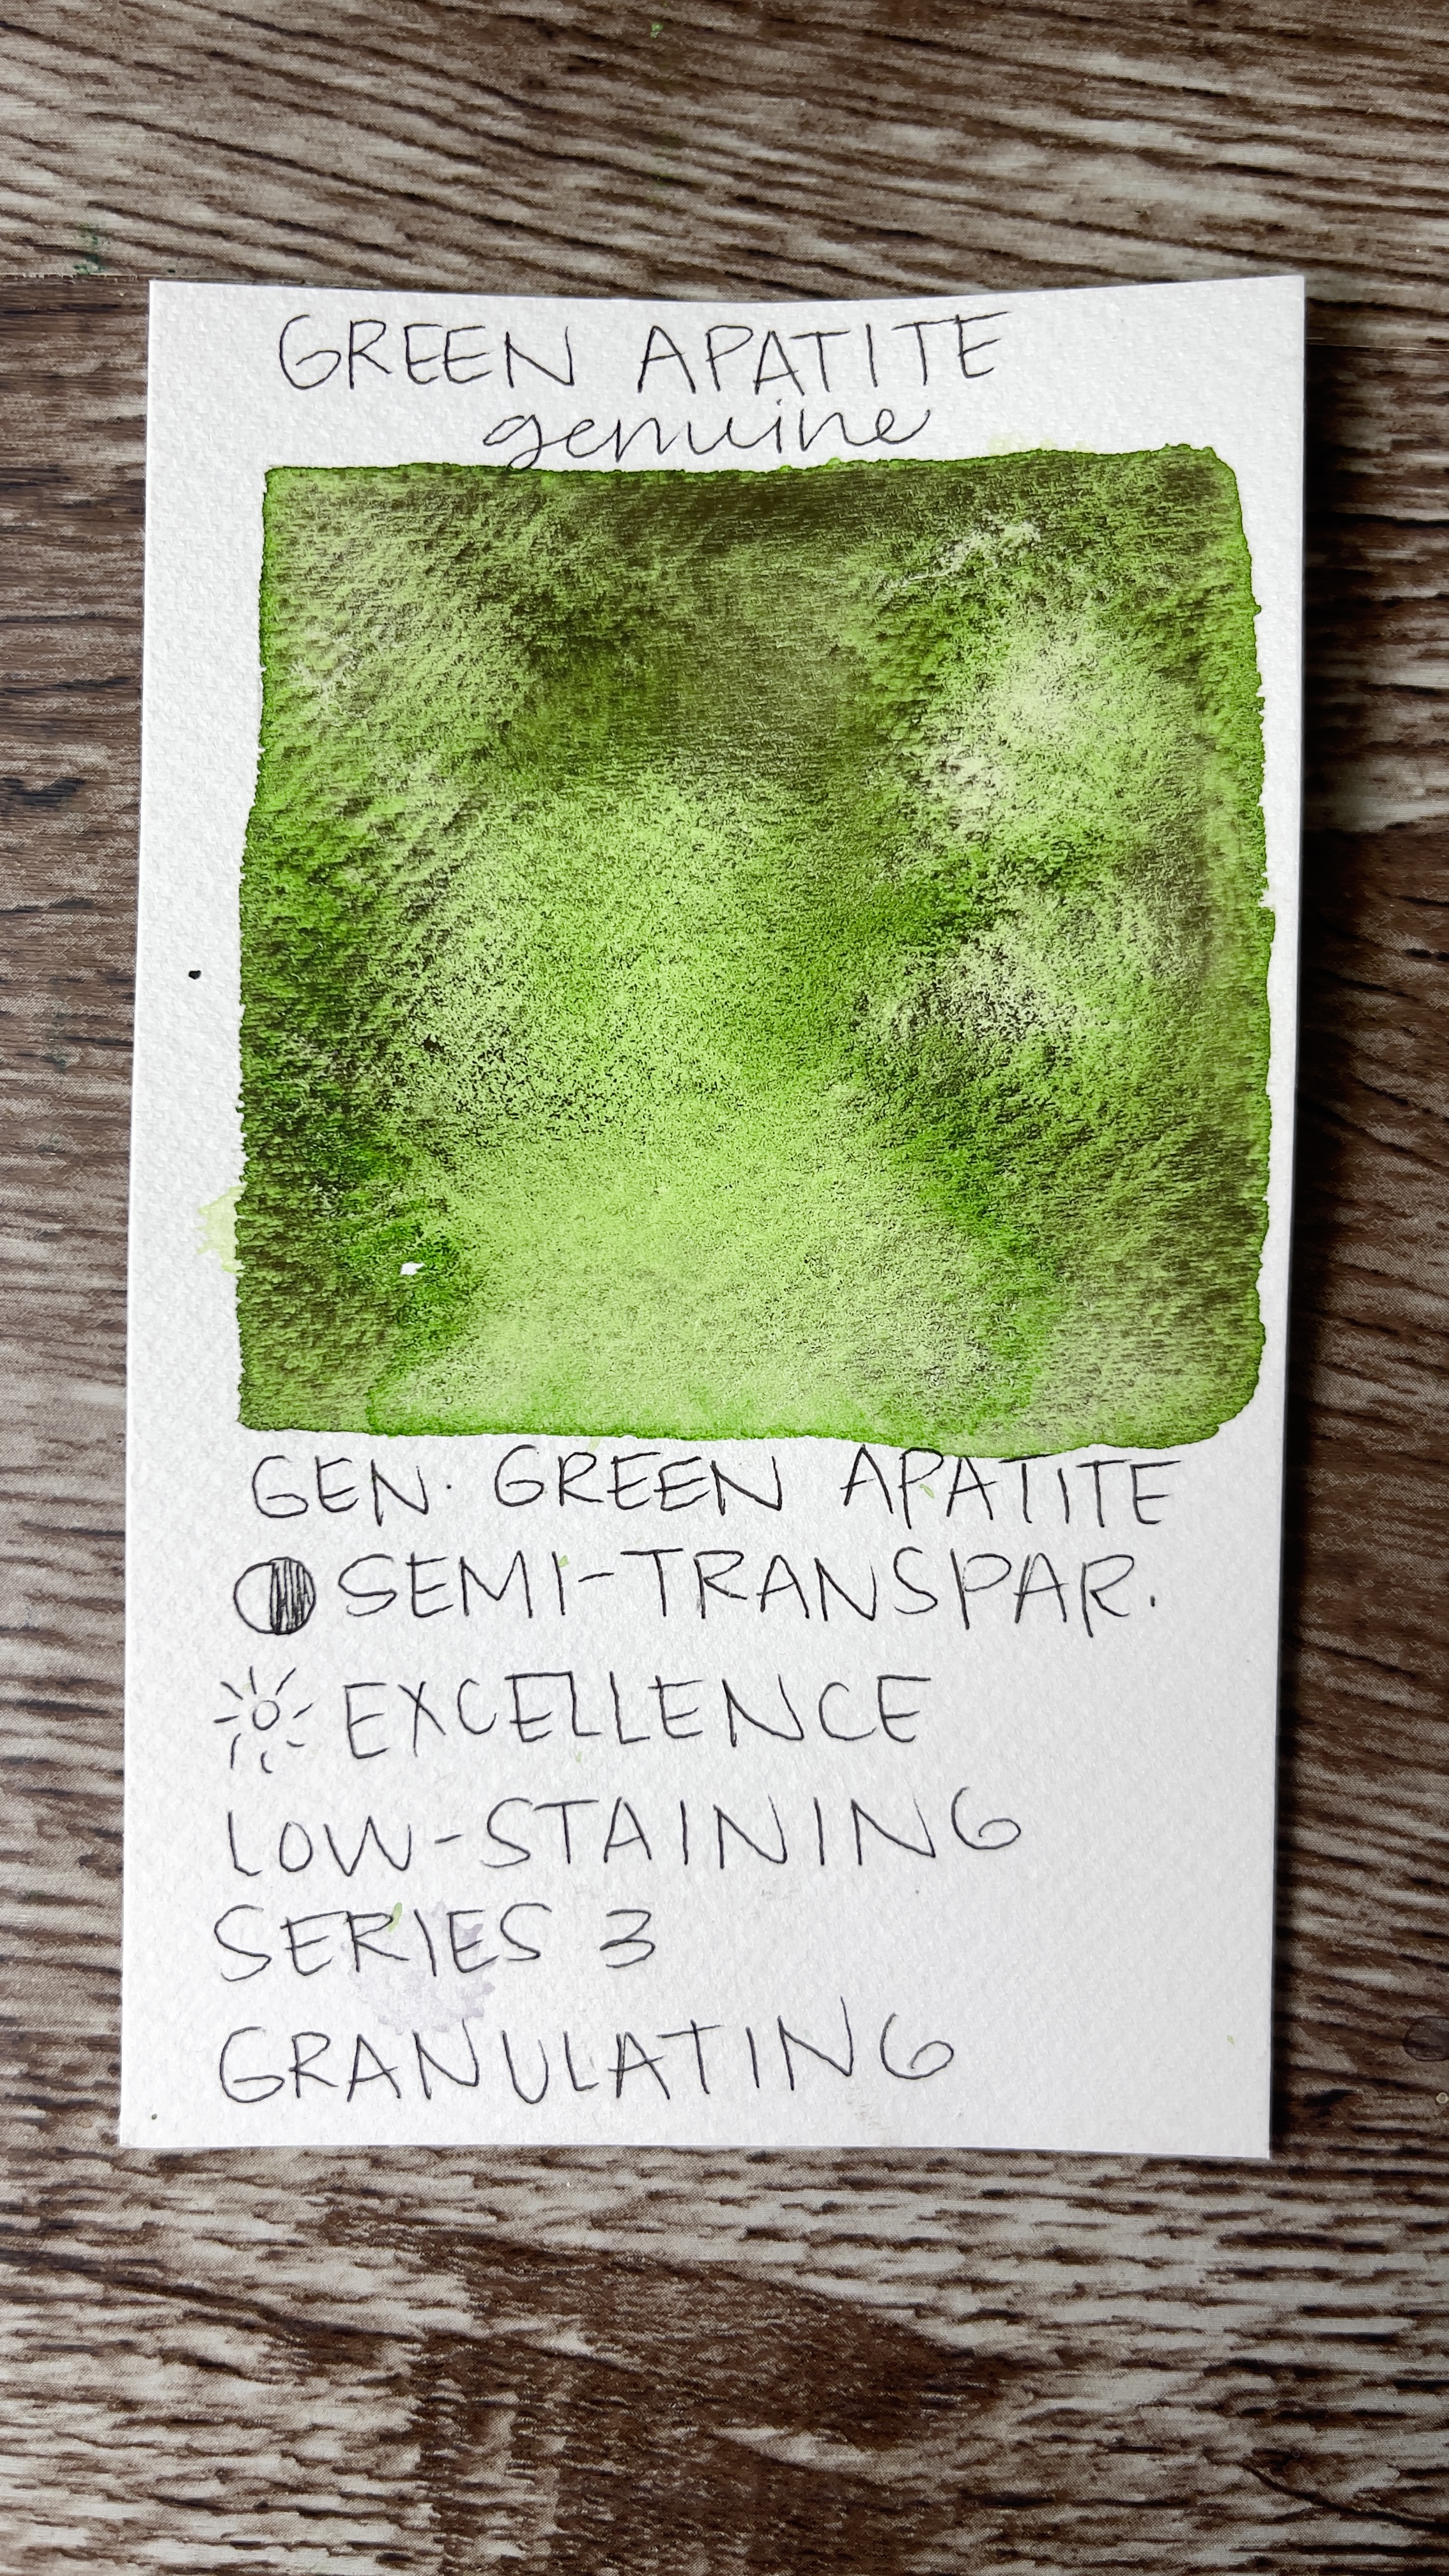 GREEN APATITE
genuine
GEN. GREEN APATITE
SEMI-TRANSPAR.
EXCELLENCE
LOW-STAINING
SERIES 3
GRANULATING